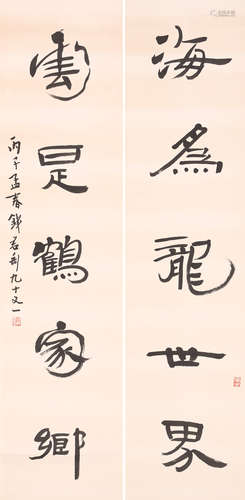 海為龍世界
雲是鶴家鄉
丙子孟春錢君匋九十又一